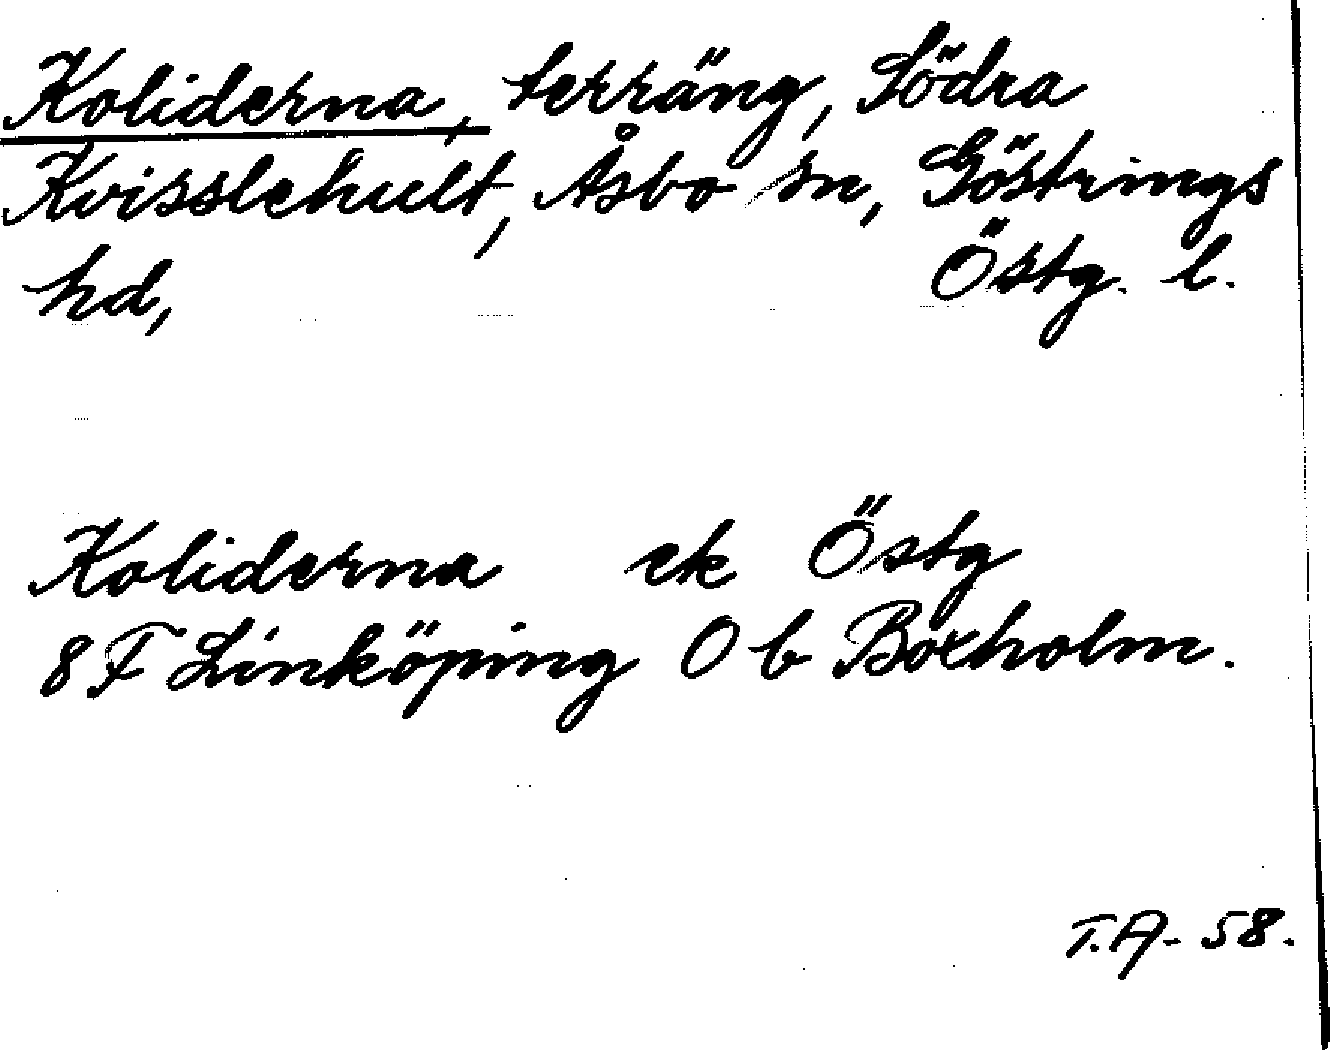 Koliderna, terräng, Södra
Kvisslehult, Åsbo sn, Göstrings
hd, Östg. l.
Koliderna ek Östg
8 F Linköping O b Boxholm.
T.A- 58.